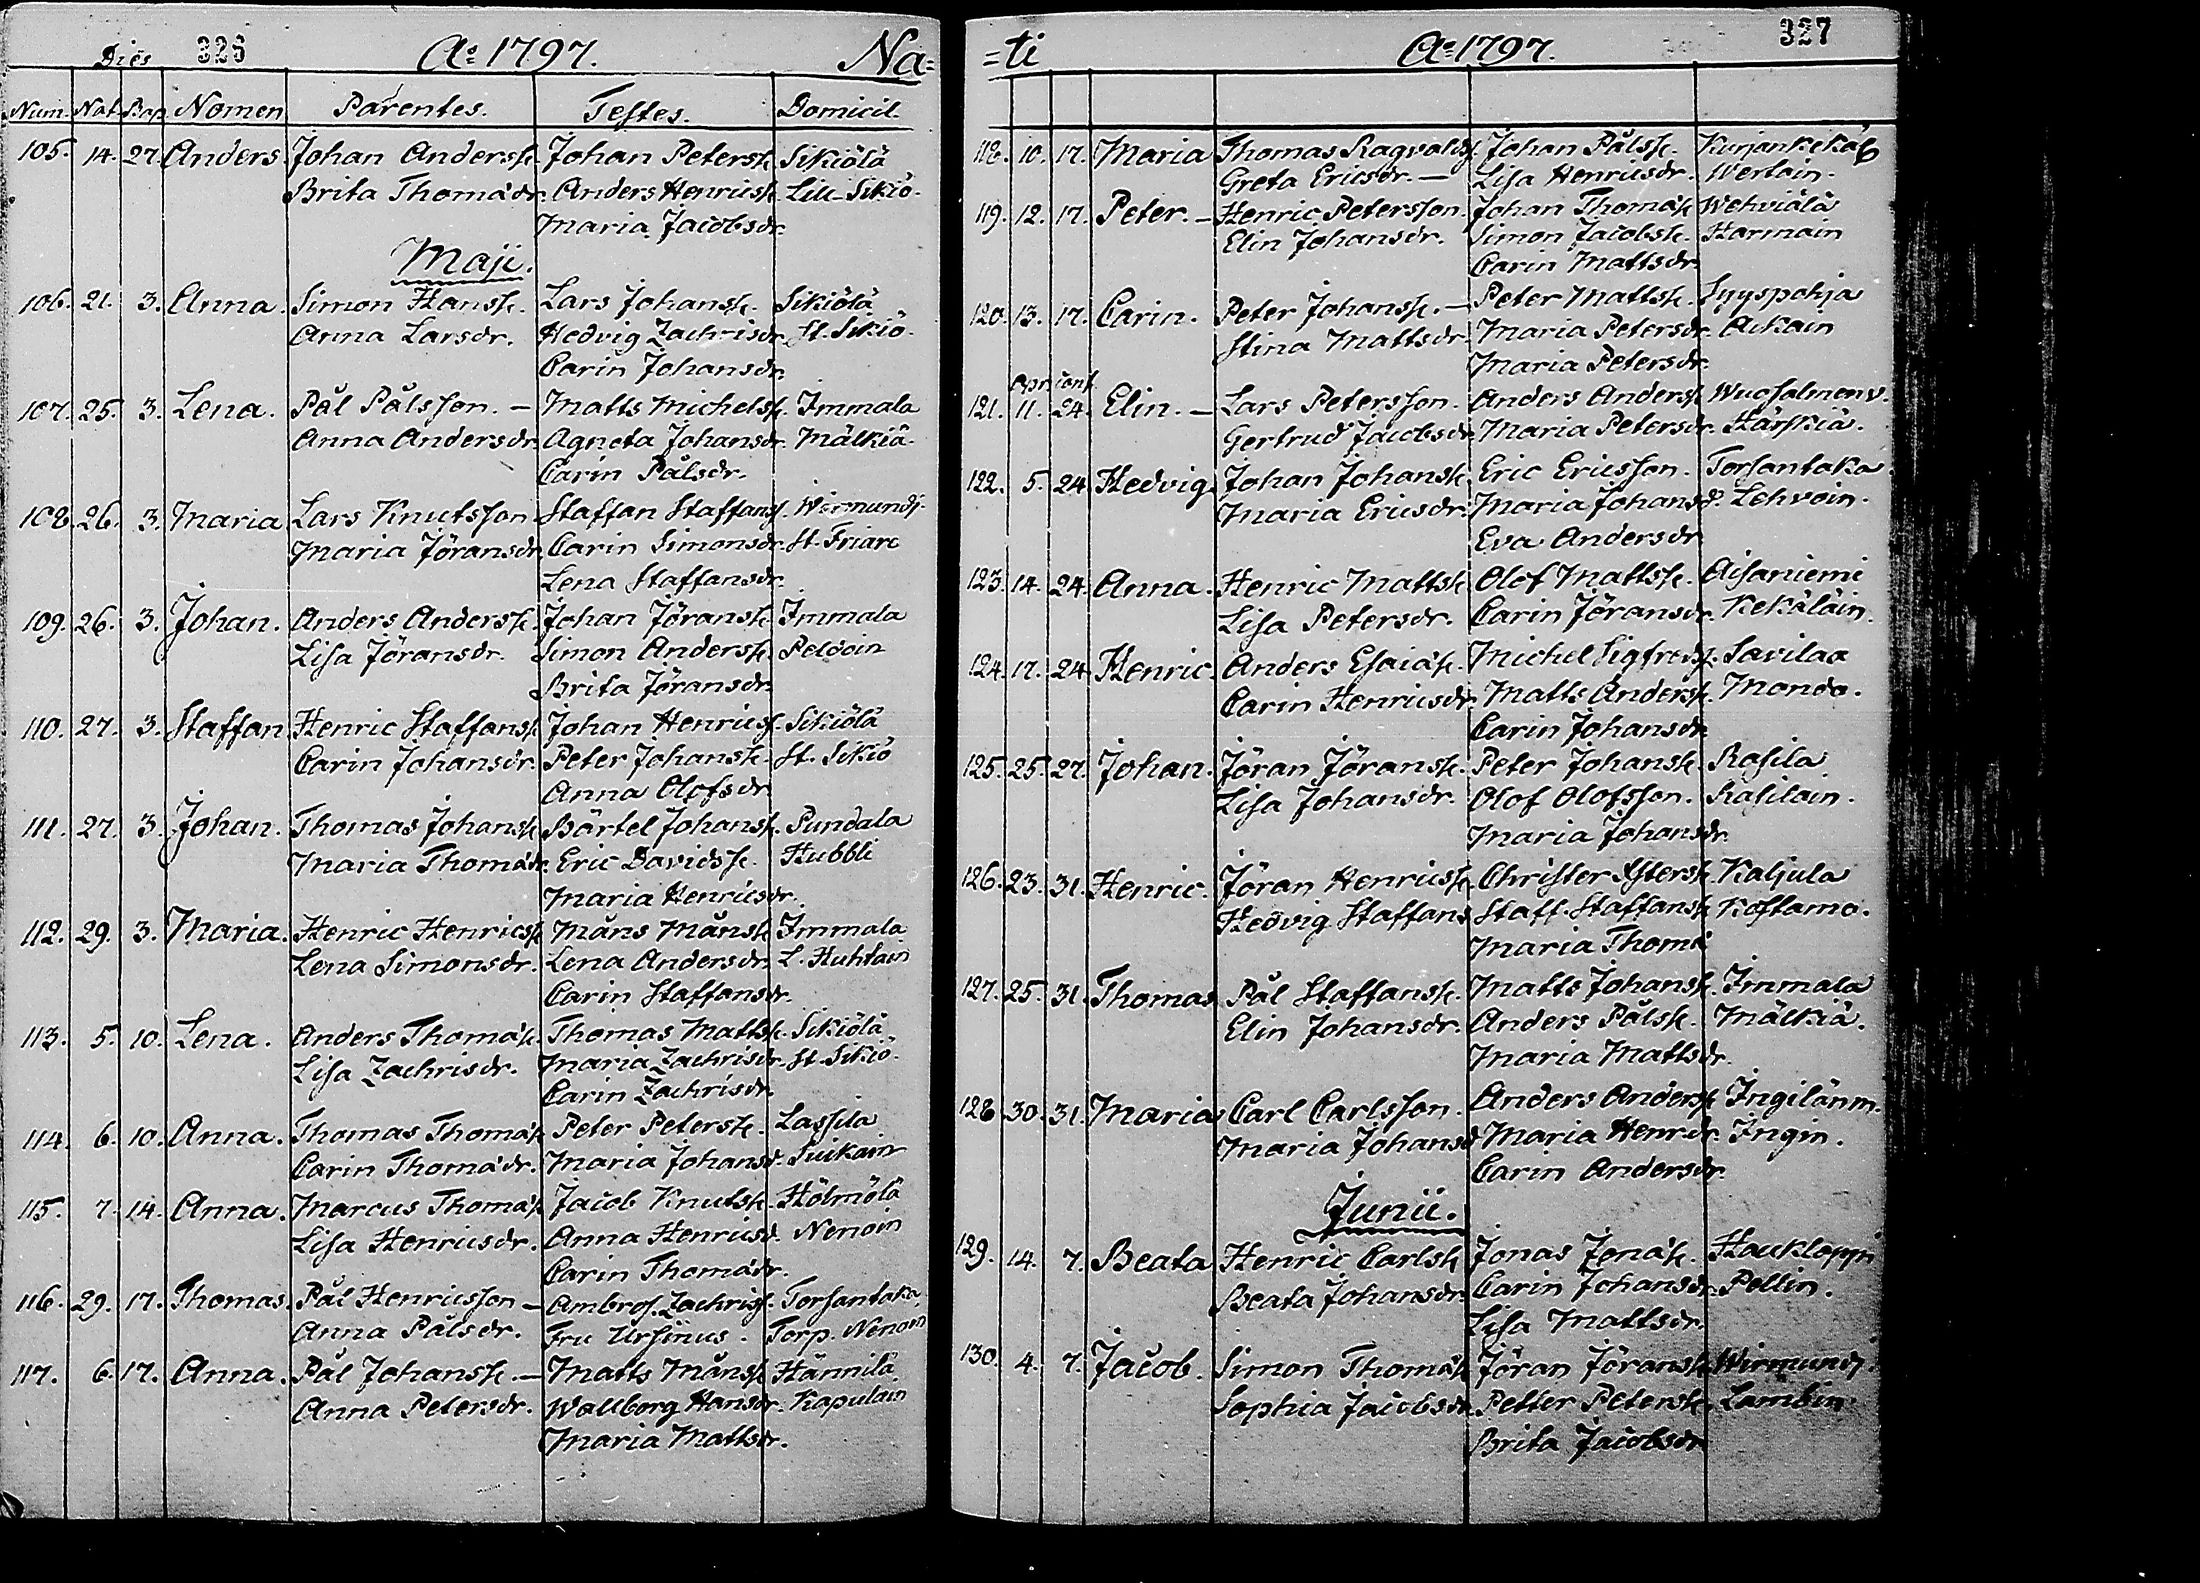 Dies 326 Ao 1797. Na=
Num. Nat. Bap. Nomen Parentes. Testes. Domicil.
105. 14. 27. Anders. Johan Anderss. Johan Peterss. Sikiölä
Brita Thomædr. Anders Henricss. Lill-Sikiö.
Maria Jacobsdr.
Maji.
106. 21. 3. Anna. Simon Hanss. Lars Johanss. Sikiölä
Anna Larsdr. Hedvig Zachrisdr. St. Sikiö.
Carin Johansdr.
107. 25. 3. Lena. Pål Pålsson. — Matts Michelss. Immala
Anna Andersdr. Agneta Johansdr. Mälkiä.
Carin Pålsdr.
108. 26. 3. Maria Lars Knutsson. Staffan Staffanss. Wirmundj.
Maria Jöransdr. Carin Simonsdr. St. Friare
Lena Staffansdr.
109. 26. 3. Johan. Anders Anderss. Johan Jöranss. Immala
Lisa Jöransdr. Simon Anderss. Peldoin
Brita Jöransdr.
110. 27. 3. Staffan Henric Staffanss. Johan Henricss. Sikiölä
Carin Johansdr. Peter Johanss. St. Sikiö
Anna Olofsdr.
111. 27. 3. Johan. Thomas Johanss. Bärtel Johanss. Pundala
Maria Thomædr. Eric Davidss. Hubbli
Maria Henricsdr.
112. 29. 3. Maria. Henric Henricss. Måns Månss. Immala
Lena Simonsdr. Lena Andersdr. L. Huhtain
Carin Staffansdr.
113. 5. 10. Lena. Anders Thomæss. Thomas Mattss. Sikiölä
Lisa Zachrisdr. Maria Zachrisdr. St. Sikiö.
Carin Zachrisdr.
114. 6. 10. Anna. Thomas Thomæss. Peter Peterss. Lassila
Carin Thomædr. Maria Johansd. Suikain
115. 7. 14. Anna. Marcus Thomæss. Jacob Knutss. Hölmölä
Lisa Henricsdr. Anna Henricsd. Nenoin
Carin Thomædr.
116. 29. 17. Thomas. Pål Henricsson — Ambros. Zachriss. Torsantaka.
Anna Pålsdr. Fru Ursinus. Torp. Nenoin
117. 6. 17. Anna. Pål Johanss. — Matts Månss. Hännilä
Anna Petersdr. Wallborg Hansdr. Kapulain
Maria Mattsdr.
=ti Ao 1797. 327
118. 10. 17. Maria Thomas Ragvaldss. Johan Pålss.
Greta Ericsdr. — Lisa Henricsdr. Wertain.
119. 12. 17. Peter. — Henric Petersson. Johan Thomæss. Wehviälä
Elin Johansdr. Simon Jacobss. Harmain
Carin Mattsdr.
120. 13. 17. Carin. Peter Johanss. — Peter Mattss. Syyspohja
Stina Mattsdr. Maria Petersdr. Aikain
Maria Petersdr.
121. 11. 24. Elin. — Lars Petersson. Anders Anderss. Wuosalmenv.
Gertrud Jacobsdr. Maria Petersdr. Härskiä.
122. 5. 24. Hedvig. Johan Johanss. Eric Ericsson. Torsantaka.
Maria Ericsdr. Maria Johansd. Lehvoin.
Eva Andersdr.
123. 14. 24. Anna. Henric Mattss. Olof Mattss. Aisaniemi
Lisa Petersdr. Carin Jöransdr. Kekäläin.
124. 17. 24. Henric. Anders Esaiæss. Michel Sigfredss. Savilaa
Carin Henricsdr. Matts Anderss. Mondo.
Carin Johansdr.
125. 25. 27. Johan. Jöran Jöranss. Peter Johanss. Rasila
Lisa Johansdr. Olof Olofsson. Rasilain.
Maria Johansdr.
126. 23. 31. Henric. Jöran Henricss. Christer Kaljula
Hedvig Staffans Staff. Staffanss. Kostamo.
Maria Thomæ
127. 25. 31. Thomas Pål Staffanss. Matts Johanss. Immala
Elin Johansdr. Anders Pålss. Mälkiä.
Maria Mattsdr.
128 30. 31. Maria Carl Carlsson. Anders Anderss. Ingilänm.
Maria Johansd Maria Henrdr. Ingin.
Carin Andersdr.
Junii.
129. 14. 7. Beata Henric Carlss. Jonas Jonæss. Haukloppi
Beata Johansdr. Carin Johansdr. Pellin.
Lisa Mattsdr.
130. 4. 7. Jacob. Simon Thomæss. Jöran Jöranss. Wirmundj.
Sophia Jacobsdr. Petter Peterss. Lambin
Brita Jacobsdr